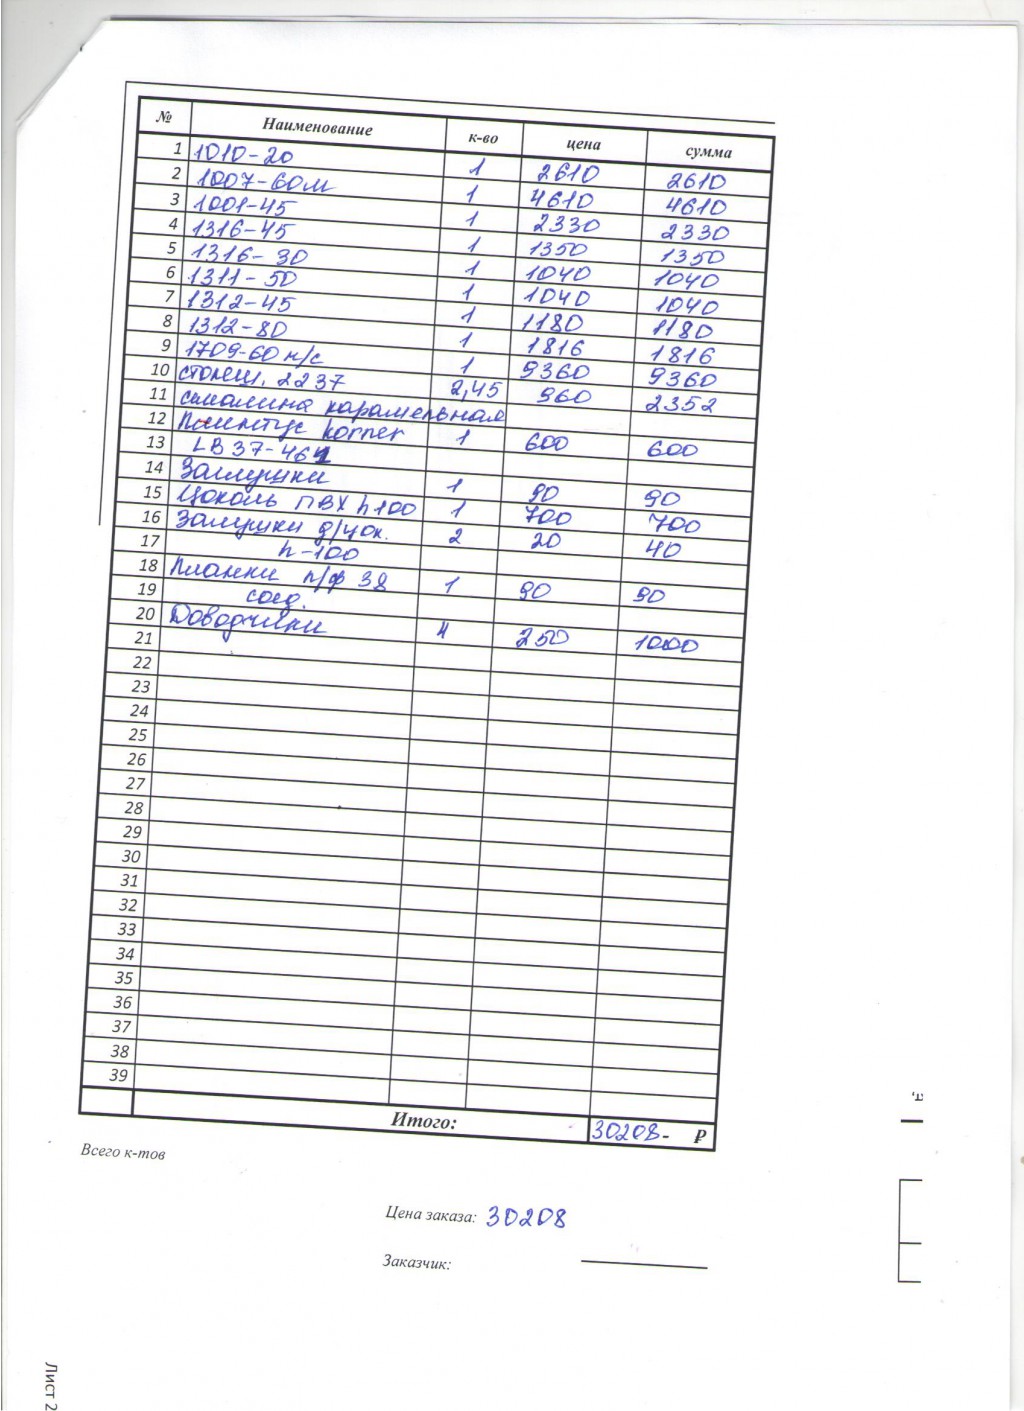 № Наименование к-во цена сумма
1 1010-20 1 2610 2610
2 1007-60м 1 4610 4610
3 1001-45 1 2330 2330
4 1316-45 1 1350 1350
5 1316-30 1 1040 1040
6 1311-50 1 1040 1040
7 1312-45 1 1180 1180
8 1312-80 1 1816 1816
9 1709-60 н/с 1 9360 9360
10 столеш. 2237 2,45 960 2352
11 смолина карамельная
12 Плинтус korner 1 600 600
13 LB37-461
14 Заглушки 1 90 90
15 Цоколь ПВХ h100 1 700 700
16 Заглушки д/цок. 2 20 40
17 h-100
18 Планки п/ф 38 1 90 90
19 соед.
20 Доводчики 4 250 1000
21
22
23
24
25
26
27
28
29
30
31
32
33
34
35
36
37
38
39
Итого: 30208- ₽
Всего к-тов
Цена заказа: 30208
Заказчик:
Лист 2